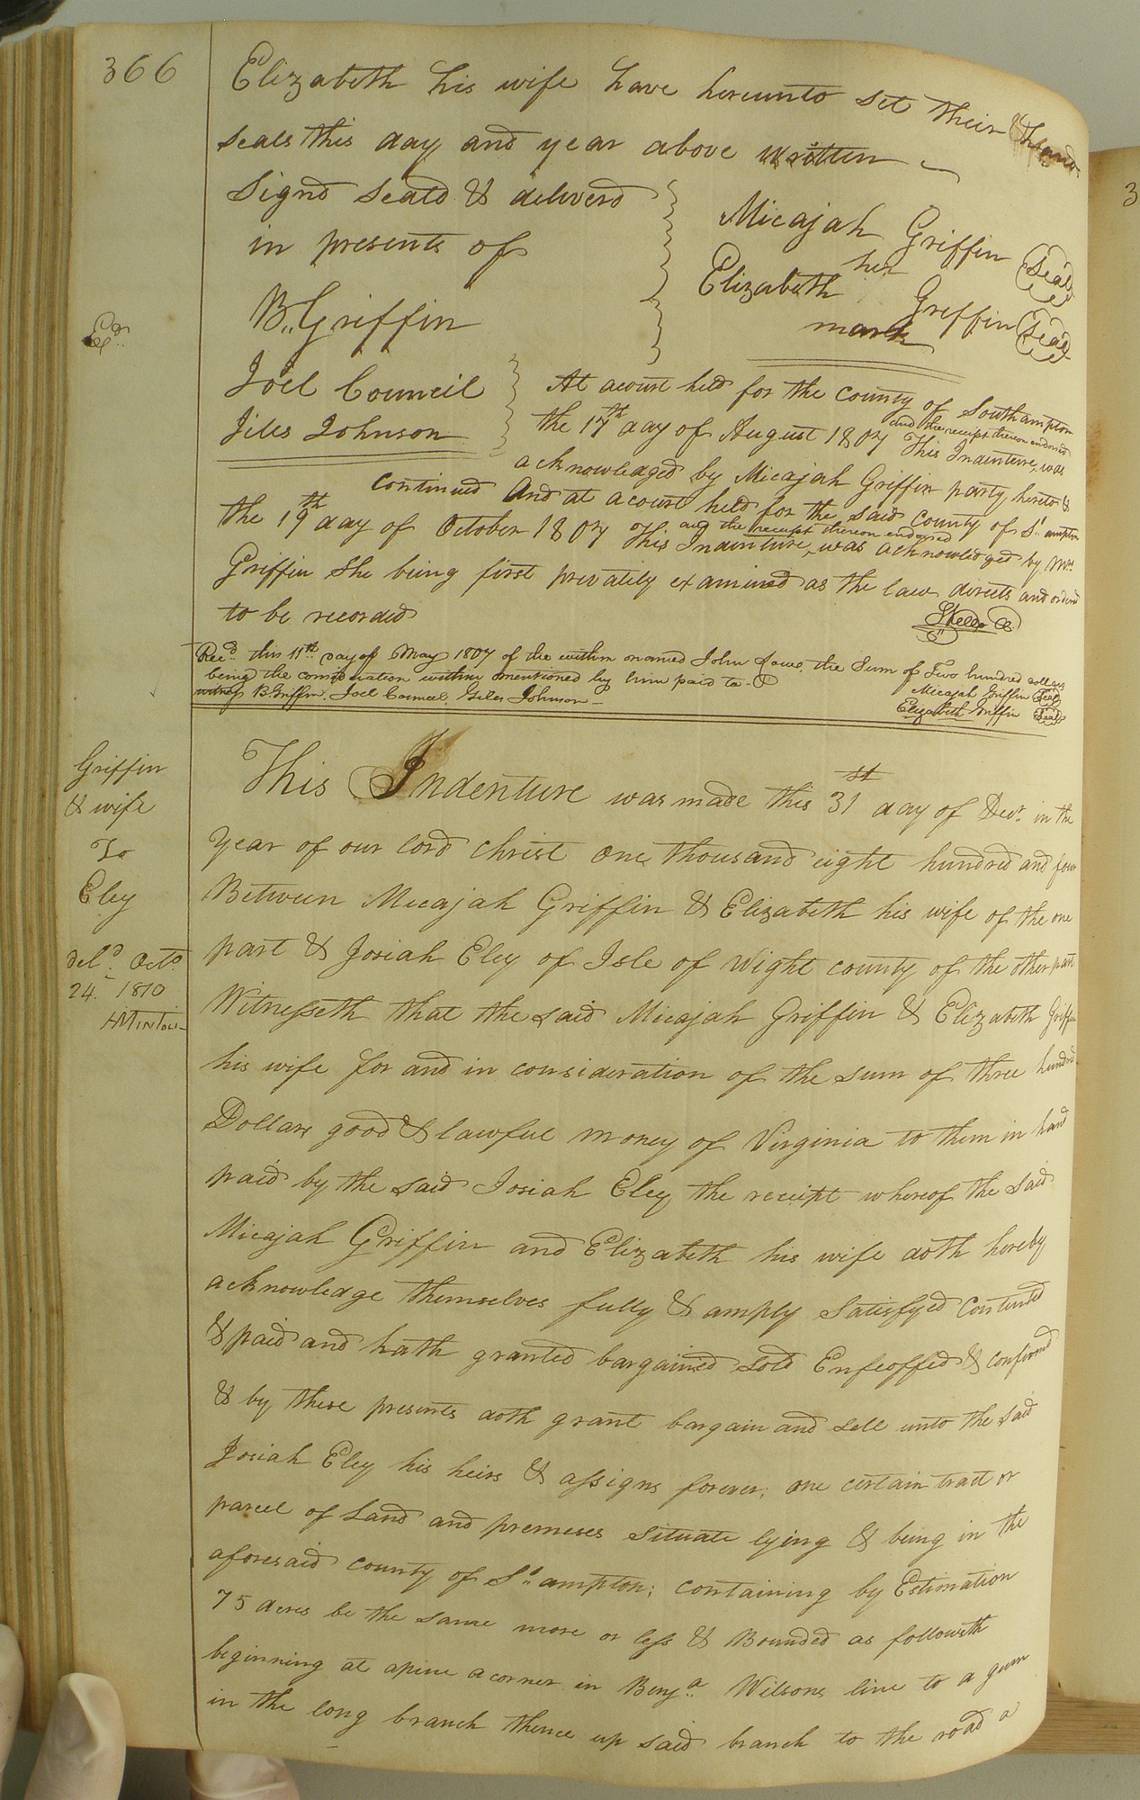 366
Elizabeth his wife have hereunto set their hands &
seals this day and year above written
Signd Seald & deliverd
in presents of
B. Griffin
Joel Council
Jiles Johnson
Micajah Griffin Seal
her
Elizabeth Griffin Seal
mark
Exd.
At acourt held for the County of Southampton
the 17th day of August 1807 This Indenture, and the receipt thereon endorsed was
acknowledged by Micajah Griffin party hereto &
continued And at acourt held for the said County of So. ampton
the 19th day of October 1807 This Indenture, and the receipt thereon endorsed was acknowledged by Mrs.
Griffin She being first privately examined as the law directs and orderd
to be recorded
Recd. this 11th day of May 1807 of the within named John the Sum of Two hundred dollars
being the consideration within mentioned by him paid to
witness B Griffin, Joel Council, Giles Johnson
Micajah Griffin Seal
Elizabeth Griffin Seal
Griffin
& wife
To
Eley
deld. Octo.
24. 1810
This Indenture was made this 31st day of Decr. in the
year of our Lord christ one thousand eight hundred and four
Between Micajah Griffin & Elizabeth his wife of the one
part & Josiah Eley of Isle of Wight county of the other part
Witnesseth that the said Micajah Griffin & Elizabeth Griffin
his wife for and in consideration of the sum of three hundred
Dollars good & lawful money of Virginia to them in hand
paid by the said Josiah Eley the receipt whereof the said
Micajah Griffin and Elizabeth his wife doth hereby
acknowledge themselves fully & amply Satisfyed Contented
& paid and hath granted bargained sold Enfeoffed & confirmd
& by these presents doth grant bargain and sell unto the said
Josiah Eley his heirs & assigns forever; one certain tract or
parcel of Land and premeses Situate lying & being in the
aforesaid county of So. ampton; containing by Estimation
75 acres be the same more or less & Bounded as followeth
beginning at apine acorner in Benja. Wilsons line to a gum
in the long branch thence up said branch to the road a